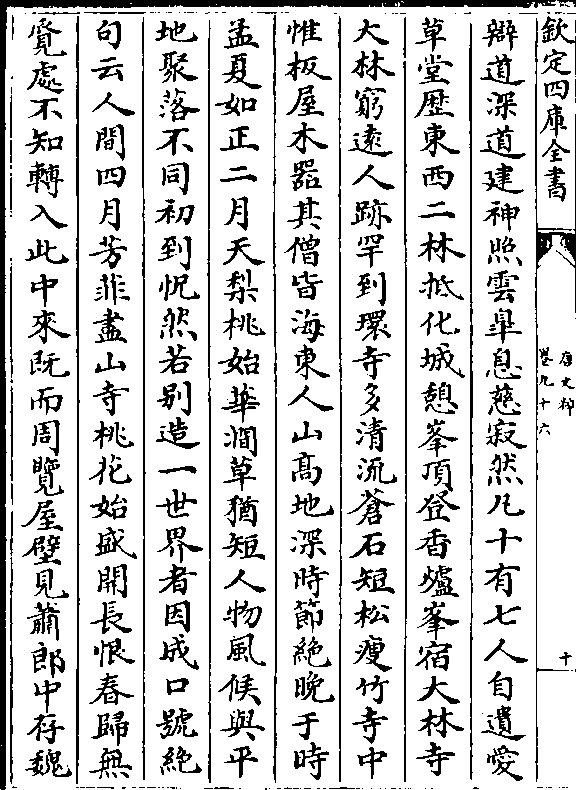 欽定四庫全書
唐文粹
卷九十六
十
辯道深道建神照雲臯息慈寂然凡十有七人自遺愛
草堂歴東西二林抵化城憩峯頂登香爐峯宿大林寺
大林窮逺人跡罕到環寺多清流蒼石短松瘦竹寺中
惟板屋木器其僧皆海東人山髙地深時節絶晚于時
孟夏如正二月天梨桃始華澗草猶短人物風候與平
地聚落不同初到恍然若别造一世界者因成口號絶
句云人間四月芳菲盡山寺桃花始盛開長恨春歸無
覓處不知轉入此中來既而周覽屋壁見蕭郎中存魏